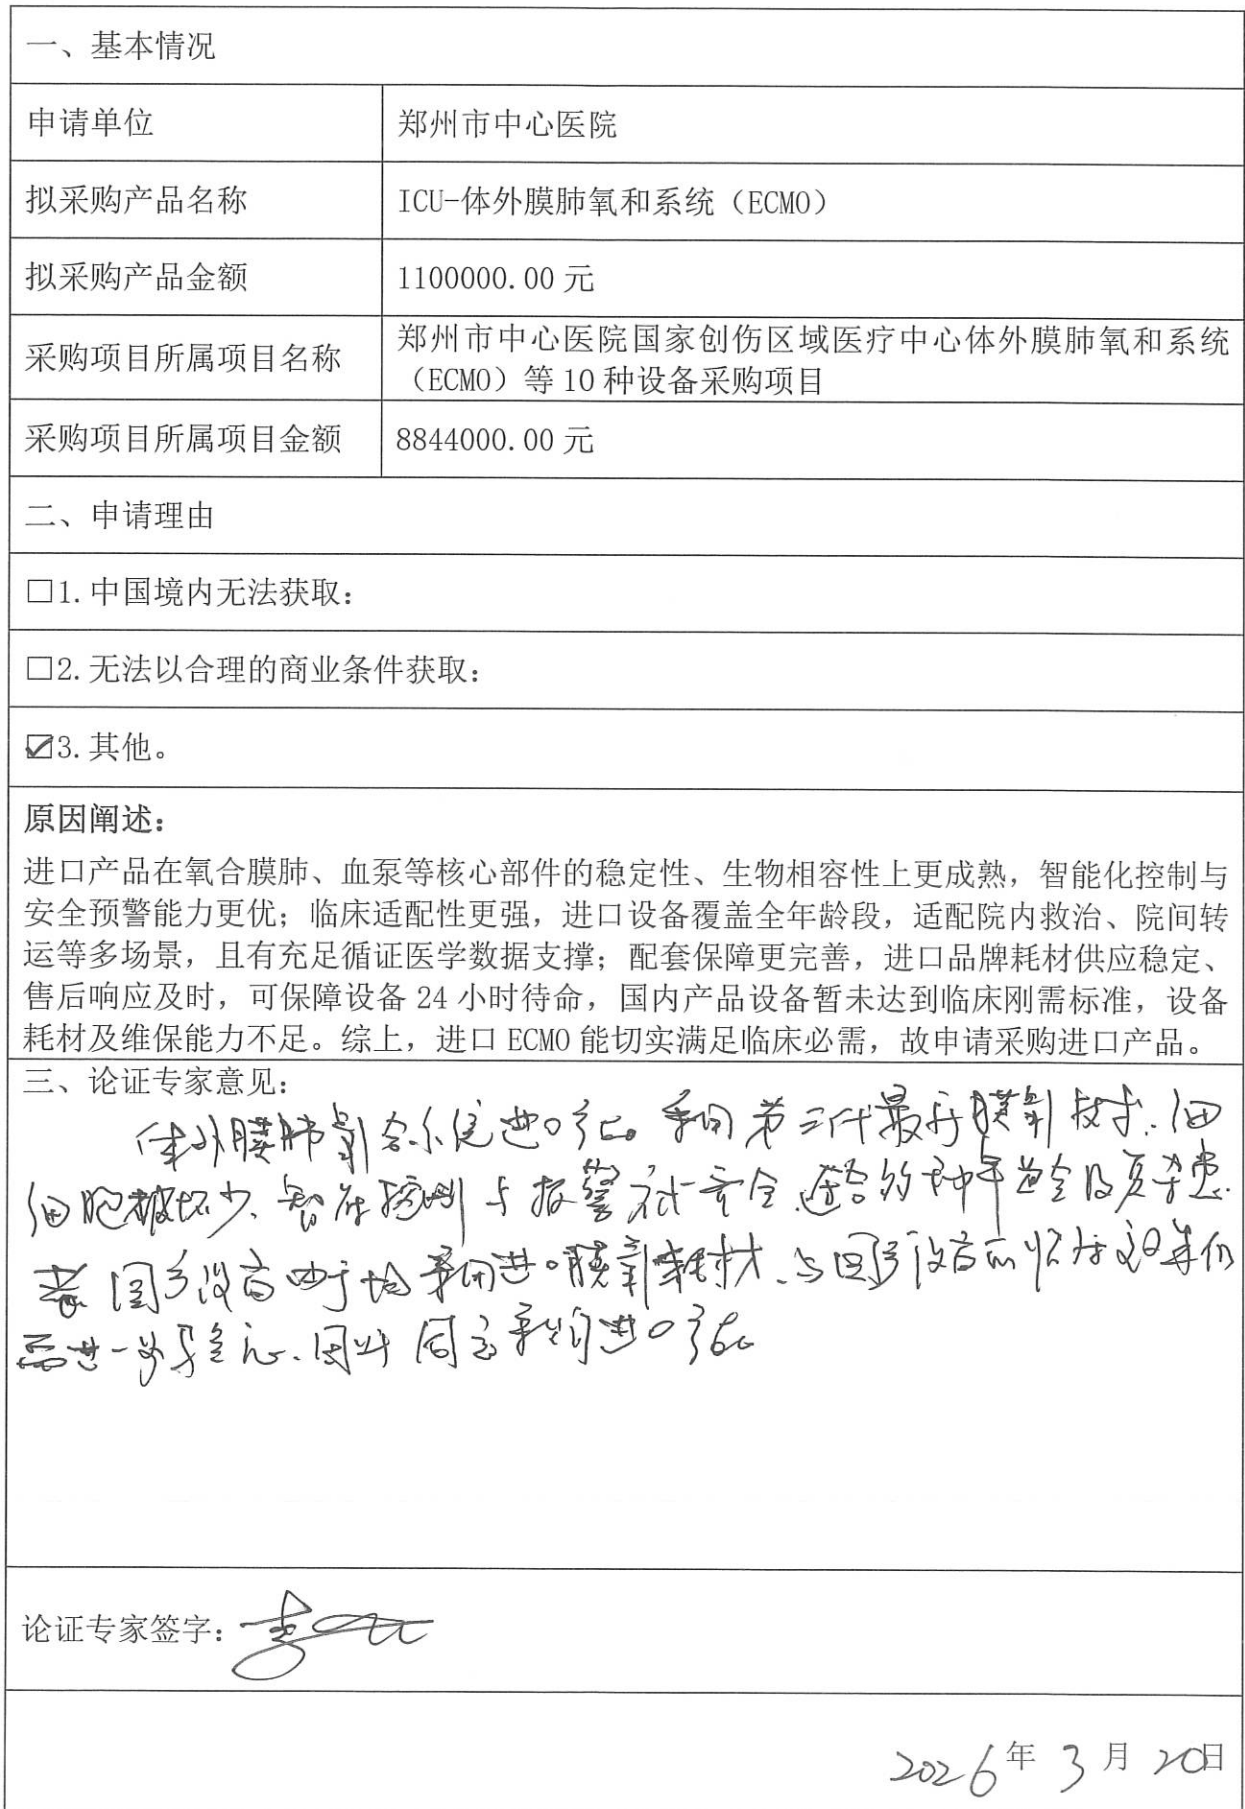 一、基本情况
申请单位
郑州市中心医院
拟采购产品名称
ICU-体外膜肺氧和系统（ECMO）
拟采购产品金额
1100000.00 元
采购项目所属项目名称
郑州市中心医院国家创伤区域医疗中心体外膜肺氧和系统
（ECMO）等 10 种设备采购项目
采购项目所属项目金额
8844000.00 元
二、申请理由
□1.中国境内无法获取：
□2.无法以合理的商业条件获取：
☑3.其他。
原因阐述：
进口产品在氧合膜肺、血泵等核心部件的稳定性、生物相容性上更成熟，智能化控制与
安全预警能力更优；临床适配性更强，进口设备覆盖全年龄段，适配院内救治、院间转
运等多场景，且有充足循证医学数据支撑；配套保障更完善，进口品牌耗材供应稳定、
售后响应及时，可保障设备 24 小时待命，国内产品设备暂未达到临床刚需标准，设备
耗材及维保能力不足。综上，进口 ECMO 能切实满足临床必需，故申请采购进口产品。
三、论证专家意见：
体外膜肺氧合系统进口产品采用第三代最新膜氧技术、血
细胞破坏少、智能控制与报警 安全 及复杂患
者 国产设备由于均采用进口膜氧耗材、 国产设备的临床效果仍
需进一步验证、因此同意采购进口产品
论证专家签字：
2026年3月20日